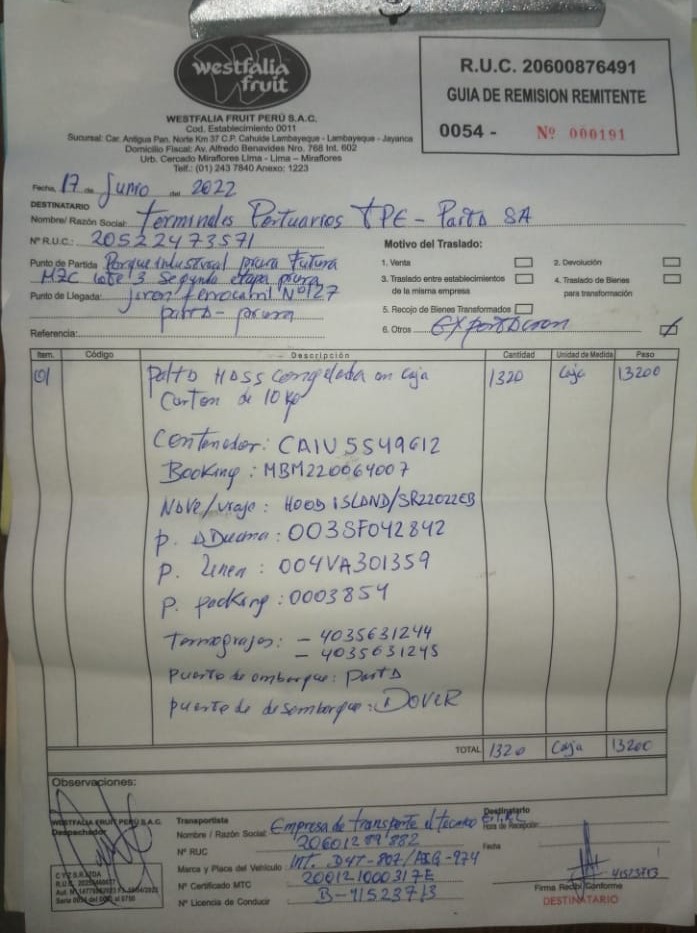 westfalia
fruit
WESTFALIA FRUIT PERÚ S.A.C.
Cod. Establecimiento 0011
Sucursal: Car. Antigua Pan. Norte Km 37 C.P. Cahuide Lambayeque - Lambayeque - Jayanca
Domicilio Fiscal: Av. Alfredo Benavides Nro. 768 Int. 602
Urb. Cercado Miraflores Lima - Lima - Miraflores
Telf.: (01) 243 7840 Anexo: 1223
R.U.C. 20600876491
GUIA DE REMISION REMITENTE
0054 - Nº 000191
Fecha, 17 de Junio del 2022
DESTINATARIO
Nombre/ Razón Social: Terminales Portuarios TPE - Paita SA
Nº R.U.C.: 20522473571
Punto de Partida Parque industrial piura Futura
MZC Lote 3 Segunda etapa piura
Punto de Llegada: Jiron ferrocarril Nº127
paita - piura
Referencia:
Motivo del Traslado:
1. Venta
2. Devolución
3. Traslado entre establecimientos
de la misma empresa
4. Traslado de Bienes
para transformación
5. Recojo de Bienes Transformados
6. Otros exportacion
Item. Código Descripción Cantidad Unidad de Medida Peso
01 palta HASS congelada en caja 1320 Caja 13200
Carton de 10 Kg
Contenedor: CAIU5549612
Booking: MBM220064007
Nave/viaje: HOOD ISLAND/SR22022EB
p. Aduana: 003SF042842
p. Linea: 004VA301359
p. packing: 0003854
Termografos: - 4035631244
- 4035631245
puerto de embarque: Paita
puerto de desembarque: DOVER
TOTAL 1320 Caja 13200
Observaciones:
WESTFALIA FRUIT PERÚ S.A.C.
Despachador
Transportista
Nombre / Razón Social: Empresa de transporte el tecano E.I.R.L
Nº RUC 20601289882
Marca y Placa del Vehículo Int. D4T-807/
Nº Certificado MTC 20012100031 7E
Nº Licencia de Conducir B-41523713
Destinatario
Hora de Recepción:
Fecha
Firma Recibi Conforme
DESTINATARIO